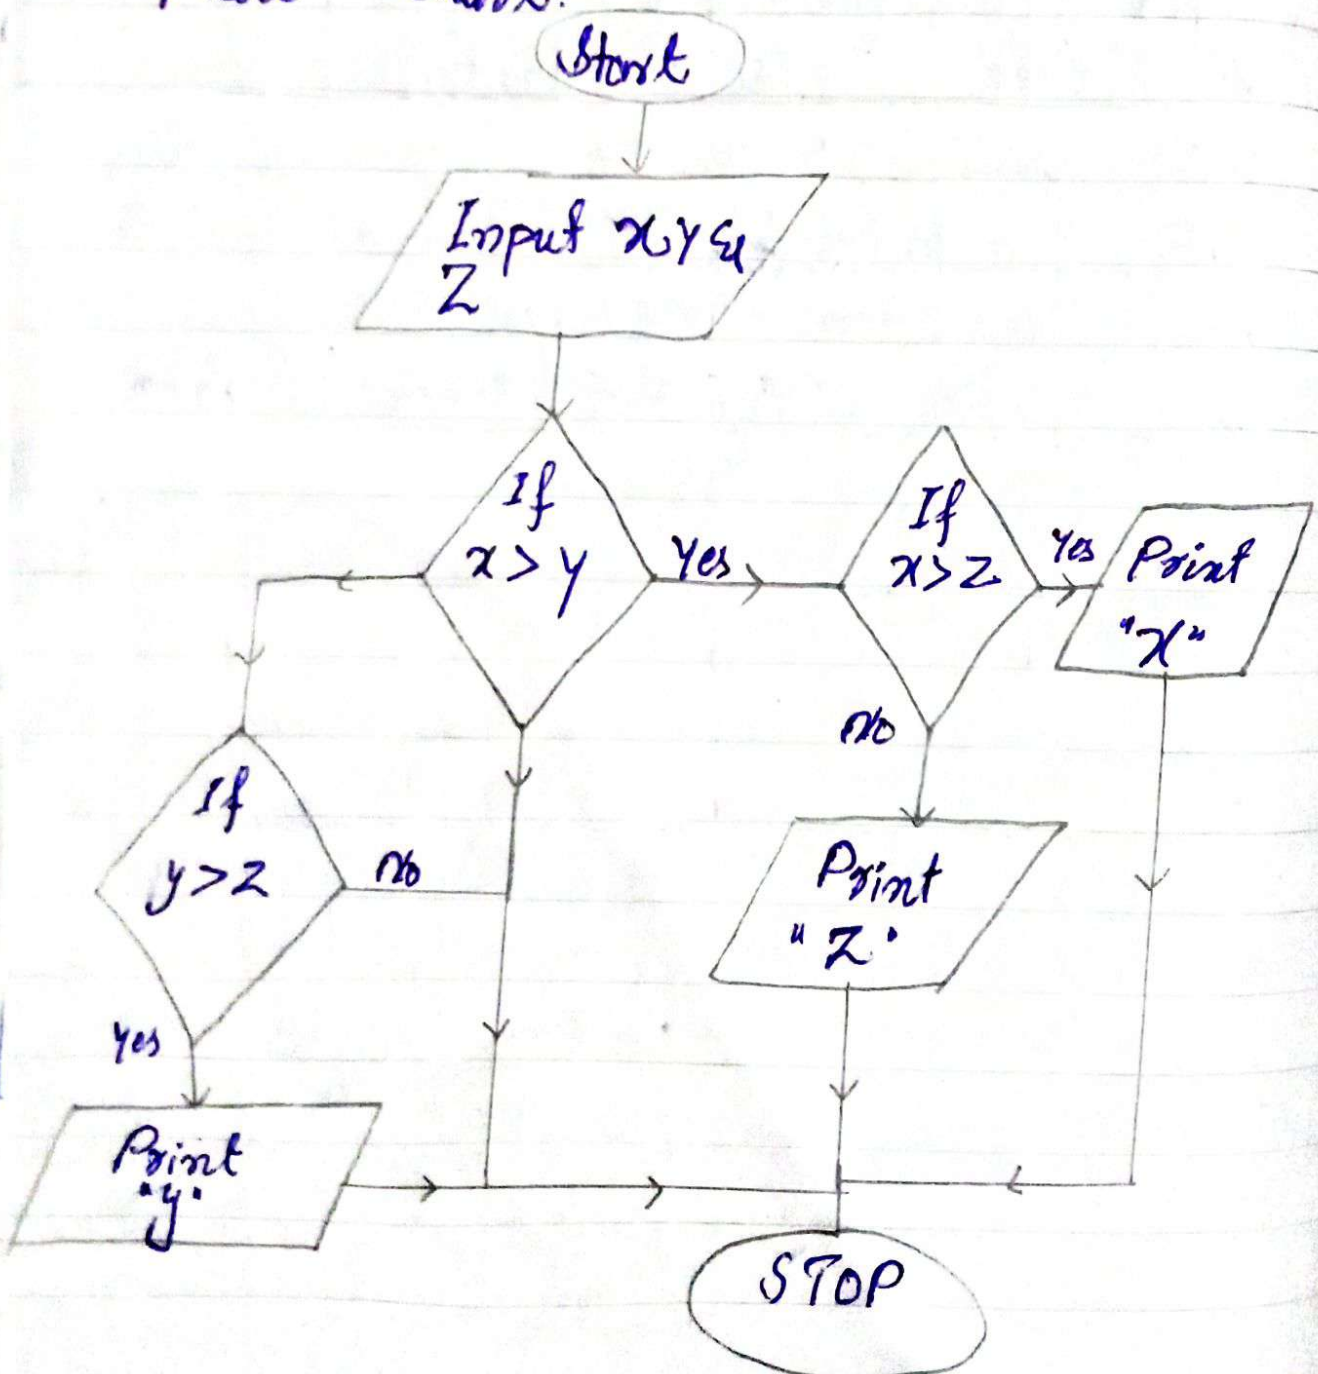 Start
Input x, y &
Z
If
x > y
Yes
If
x > z
Yes
Print
"X"
no
If
y > z
no
Print
"Z"
Yes
Print
"y"
STOP